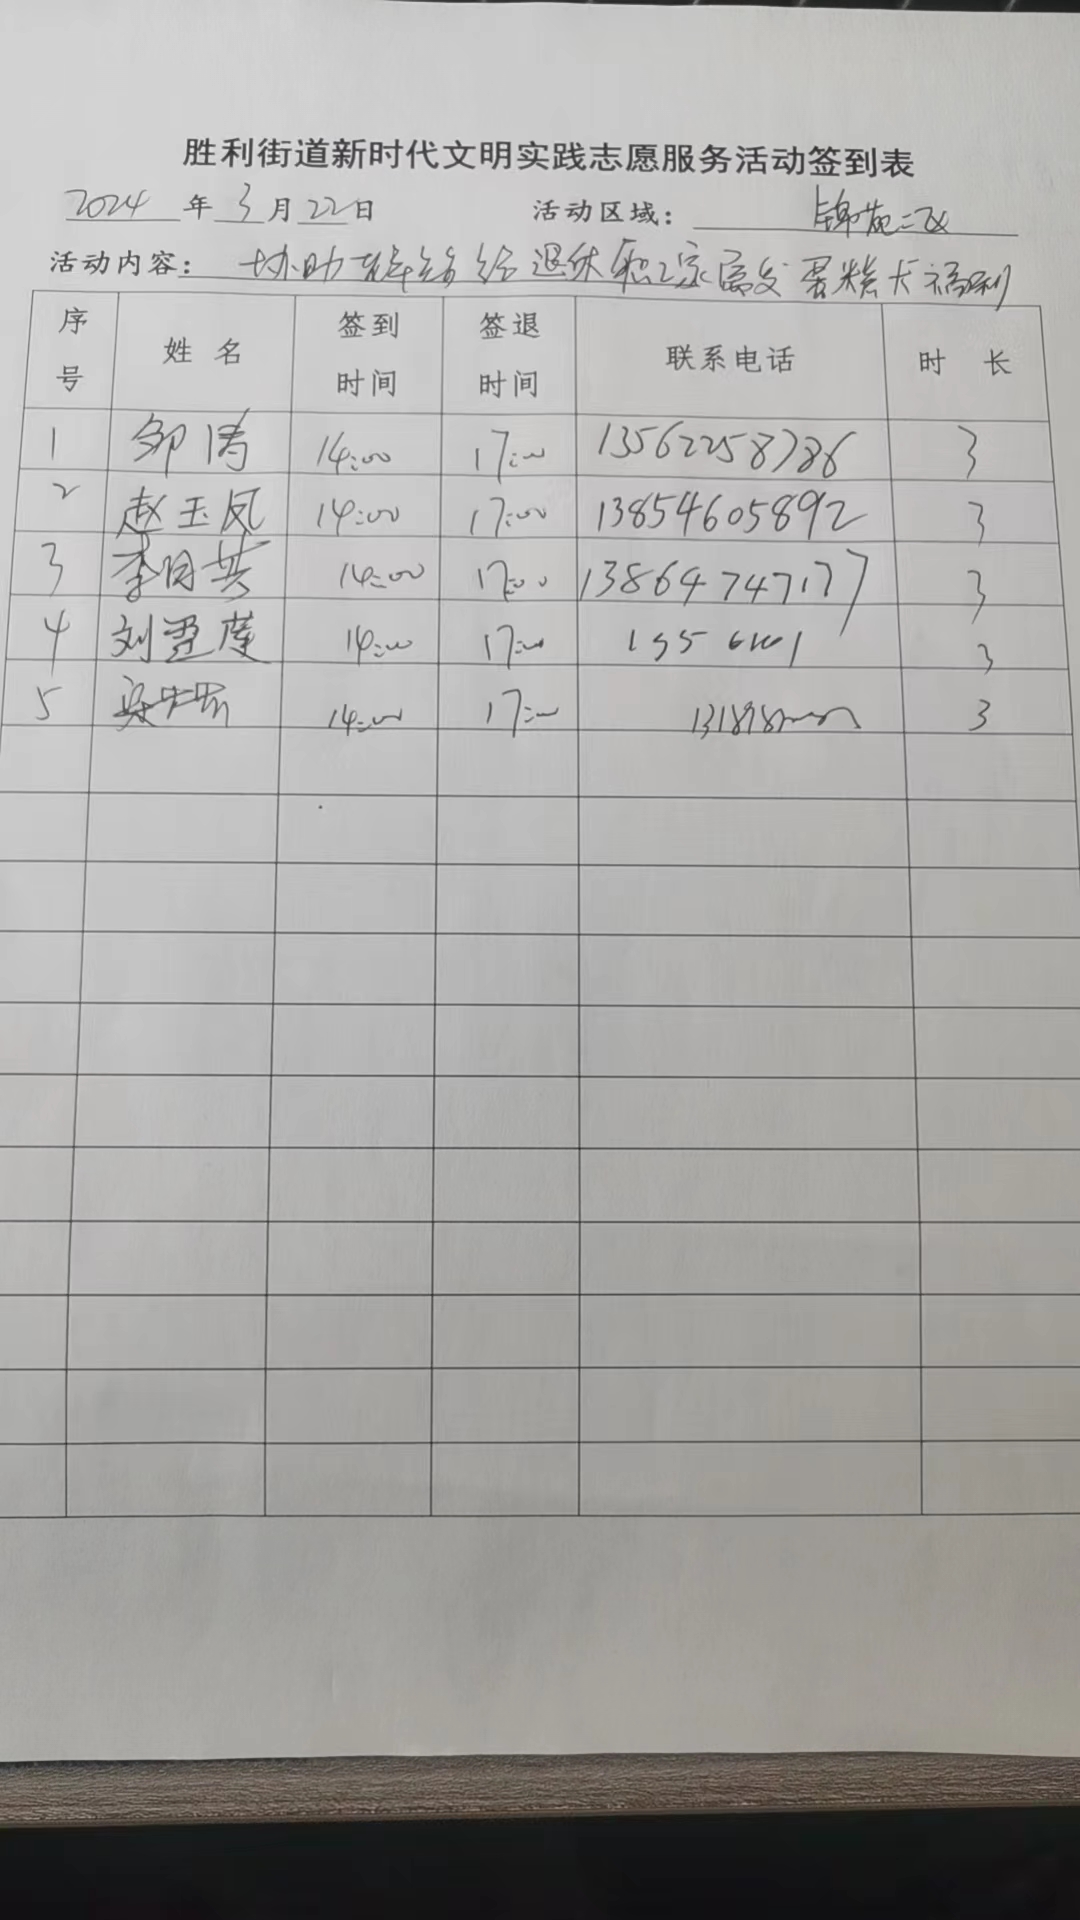 胜利街道新时代文明实践志愿服务活动签到表
2024 年 3 月 22 日 活动区域： 锦苑二区
活动内容： 协助 给退休职工家属发蛋糕卡福利
序号 姓名 签到时间 签退时间 联系电话 时长
1 邹涛 14:00 17:00 13562258786 3
2 赵玉凤 14:00 17:00 13854605892 3
3 李月英 14:00 17:00 13864747177 3
4 刘 14:00 17:00 3
5 14:00 17:00 3